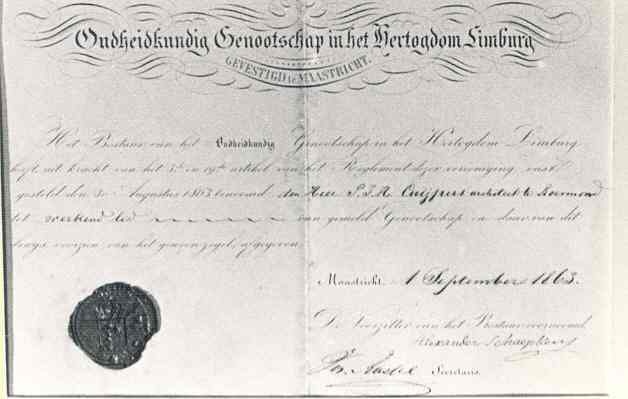 Oudheidkundig Genootschap in het Hertogdom Limburg
GEVESTIGD te MAASTRICHT.
Het Bestuur van het Oudheidkundig Genootschap in het Hertogdom Limburg
heeft uit kracht van het 5de en 19de artikel van het Reglement dezer vereeniging vast
gesteld den 30n Augustus 1863 benoemd den Heer P.J.H. Cuijpers architect te Roermond
tot werkend lid van gemeld Genootschap en daarvan dit
diploma voorzien van het genoemde zegel, afgegeven
Maastricht. 1 September 1863.
De Voorzitter van het Bestuur voornoemd,
Alexander Schaepkens
Secretaris.